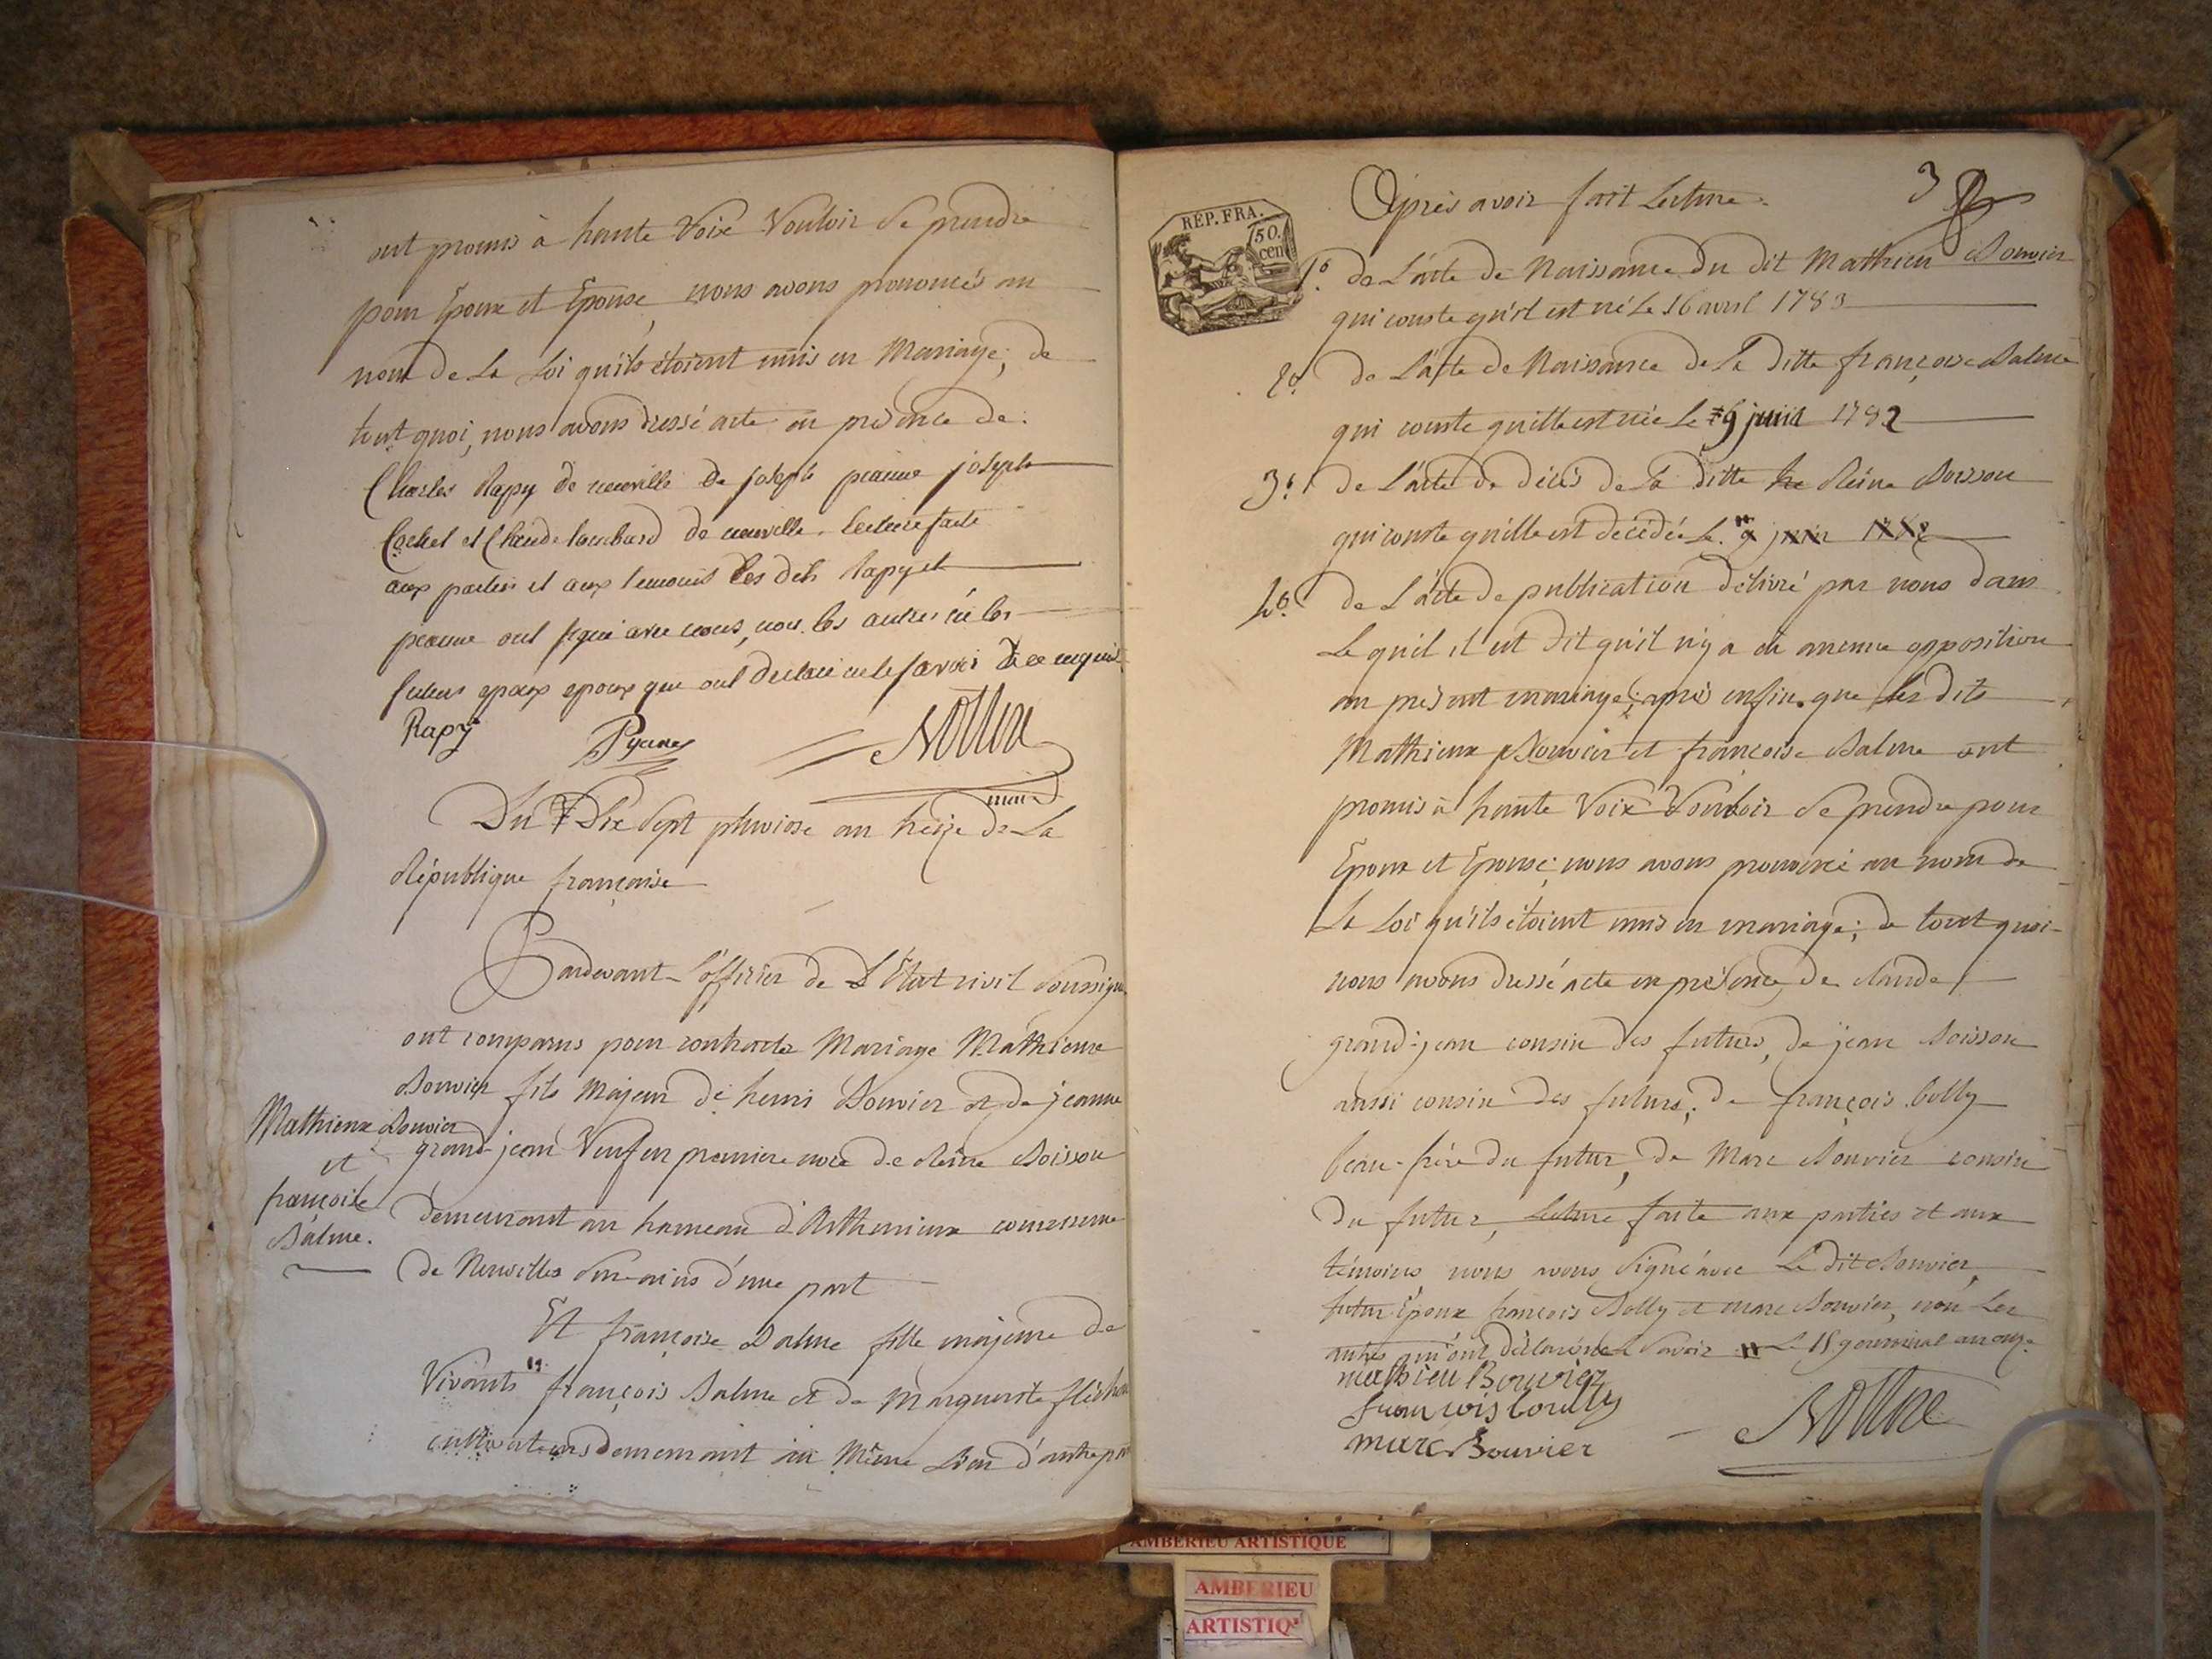 ont promis à haute Voix Vouloir se prendre
pour Epoux et Epouse, nous avons prononcés au
nom de La Loi qu'ils étoient unis en Mariage; de
tout quoi, nous avons dressé acte en présence de:
Charles Rapy de neuville de joseph joseph
Cochet et Claude lombard de neuville. lecture faite
aux parties et aux temoins les dits Rapy et
ont signé avec nous, non les autres ni les
futurs epoux epoux que ont declaré ne le savoir de ce enquis
Rapy
maire
Du Dix Sept pluviose an treize de La
République françoise
Pardevant L'officier de L'Etat civil soussigné
ont comparus pour contracter Mariage Mathieux
Bouvier fils Majeur de henri Bouvier et de jeanne
grand-jean Veuf en premiere noce de Reine Boisson
demeurant au hameau d'Arthunieux commune
de Neuvilles Sur-ains d'une part
Mathieux Bouvier
et
françoise
Balme.
Et françoise Balme fille majeure de
Vivants françois Balme et de Marguerite
cultivateurs demeurant au Même Lieu d'autre part
3
REP. FRA.
50.
cen
Après avoir fait Lecture
1° de L'acte de Naissance du dit Mathieu Bouvier
qui conste qu'il est né le 16 avril 1783
2° de L'acte de Naissance de La ditte françoise Balme
qui conste qu'elle est née le 9 juin 1782
3° de L'acte de décès de La ditte Reine Boisson
qui conste qu'elle est décédée Le 9 juin 1782
4° de L'acte de publication délivré par nous dans
Lequel il est dit qu'il n'y a eu aucune opposition
au présent mariage; après enfin que les dits
Mathieux Bouvier et françoise Balme ont
promis à haute Voix Vouloir se prendre pour
Epoux et Epouse; nous avons prononcé au nom de
La Loi qu'ils étoient unis en mariage; de tout quoi
nous avons dressé acte en présence de claude
grand-jean cousin des futurs, de jean Boisson
aussi cousin des futurs; de françois Bolly
beau-frère du futur, de Marc Bouvier cousin
du futur, Lecture faite aux parties et aux
témoins nous avons signé avec Le dit Bouvier
futur Epoux françois Bolly et marc Bouvier, non Les
autres qui ont déclaré ne savoir Le 18 germinal an onze.
mathieu Bouvier
francois boully
marc Bouvier
AMBERIEU ARTISTIQUE
AMBERIEU
ARTISTIQ